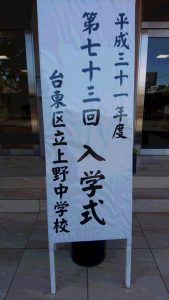 平成三十一年度
第七十三回 入学式
台東区立上野中学校